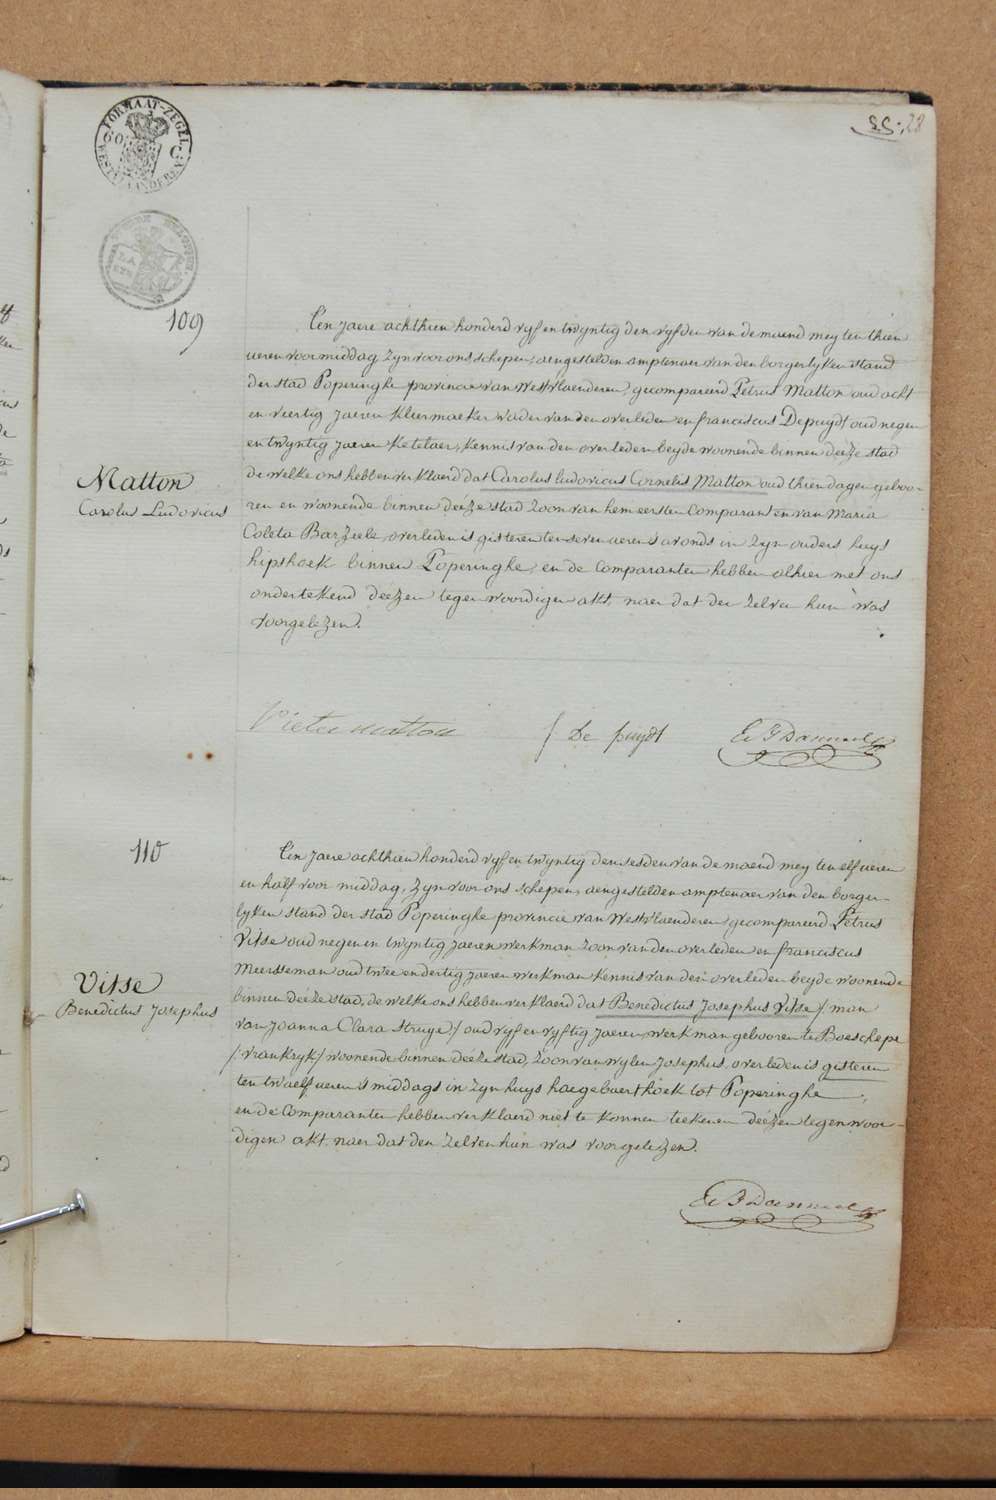 FORMAAT-ZEGEL
60 C
WEST-VLAANDEREN
28
109
Een jaere achthien honderd vyf en twyntig den vyfden van de maend mey ten thien
ueren voormiddag zyn voor ons schepen, aengestelden amptenaer van den borgerlyken stand
der stad Poperinghe provincie van Westvlaenderen, gecompareerd Petrus Matton oud acht
en viertig jaeren kleermaeker vader van den overleden en franciscus Depuydt oud negen
en twyntig jaeren ketelaer, kennis van den overleden beyde woonende binnen deéze stad
de welke ons hebben verklaerd dat Carolus ludovicus Cornelis Matton oud thien dagen geboo-
ren en woonende binnen deéze stad zoon van hem eersten Comparant en van Maria
Coleta Barzeele, overleden is gisteren ten seven ueren 's avonds in zyn ouders huys
hipshoek binnen Poperinghe, en de Comparanten hebben alhier met ons
ondertekend deézen tegenwoordigen akt, naer dat den zelven hun was
voorgelezen.
Matton
Carolus Ludovicus
Pieter matton
f De puydt
110
Een jaere achthien honderd vyf en twyntig den sesden van de maend mey ten elf ueren
en half voor middag, zyn voor ons schepen, aengestelden amptenaer van den borger-
lyken stand der stad Poperinghe provincie van Westvlaenderen gecompareerd Petrus
Vitse oud negen en twyntig jaeren werkman zoon van den overleden en franciscus
Meersseman oud twee en dertig jaeren werkman kennis van den overleden beyde woonende
binnen deéze stad, de welke ons hebben verklaerd dat Benedictus Josephus Vitse /: man
van Joanna Clara Struye :/ oud vyf en vyftig jaeren, werkman gebooren te Boeschepe
/: vrankryk :/ woonende binnen deéze stad, zoon van wylen Josephus, overleden is gisteren
ten twaelf ueren 's middags in zyn huys haegebaerthoek tot Poperinghe
en de Comparanten hebben verklaerd niet te konnen teekenen deézen tegenwoor-
digen akt naer dat den zelven hun was voorgelezen.
Vitse
Benedictus Josephus